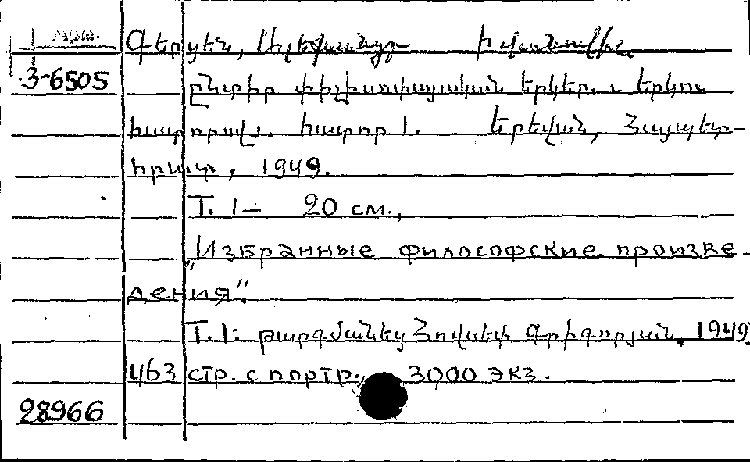 Գերցեն, Ալեքսանդր Իվանովիչ
3-6505
Ընտիր փիլիսոփայական երկեր. երկու
հատորով. հատոր 1. Երեվան, Հայպետ-
հրատ, 1949.
Т. 1 — 20 см.,
„Избранные философские произве-
дения".
Т. 1: թարգմանեց Հովսեփ Գրիգորյան. 1949
463 стр. с портр. 3000 экз.
28966